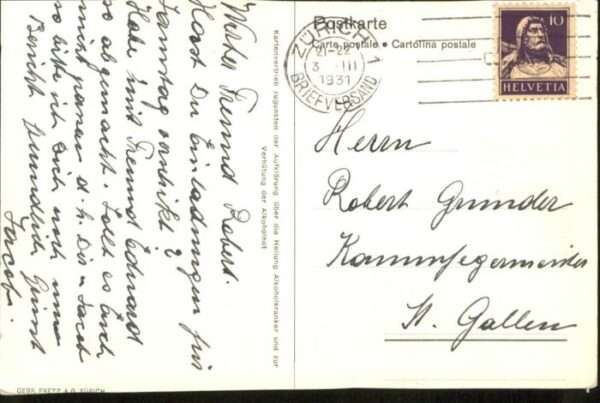 Postkarte
Carte postale • Cartolina postale
ZÜRICH 1
21-22
3. III
1931
BRIEFVERSAND
10
HELVETIA
Herrn
Robert Gmünder
Kaminfegermeister
St. Gallen
Werter Freund Robert.
Hast Du Einladungen für
Samstag verschickt?
Habe mit Freund Eduard
so abgemacht. Sollt es Euch
nicht passen d. h. Dir u. Jacob
so bitte ich Dich noch um
Bericht. Freundlich Grüsst
Jacob.
Kartenvertrieb zugunsten der Aufklärung über die Heilung Alkoholkranker und zur
Verhütung der Alkoholnot
GEBR. FRETZ A.G. ZÜRICH